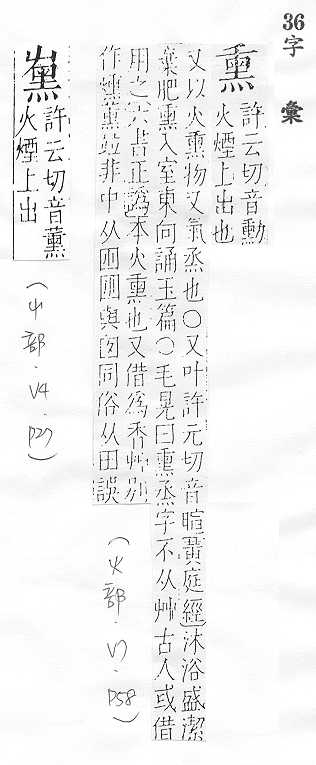 36字 彙
熏
許云切音勳
火煙上出也
又以火熏物又氣烝也○又叶許元切音暄黃庭經沐浴盛潔
棄肥熏入室東向誦玉篇○毛晃曰熏烝字不从艸古人或借
用之六書正譌本火熏也又借爲香艸別
作燻薰竝非中从與囱同俗从田誤
(火部．V7．P58)
許云切音薰
火煙上出
(屮部．V4．P27)